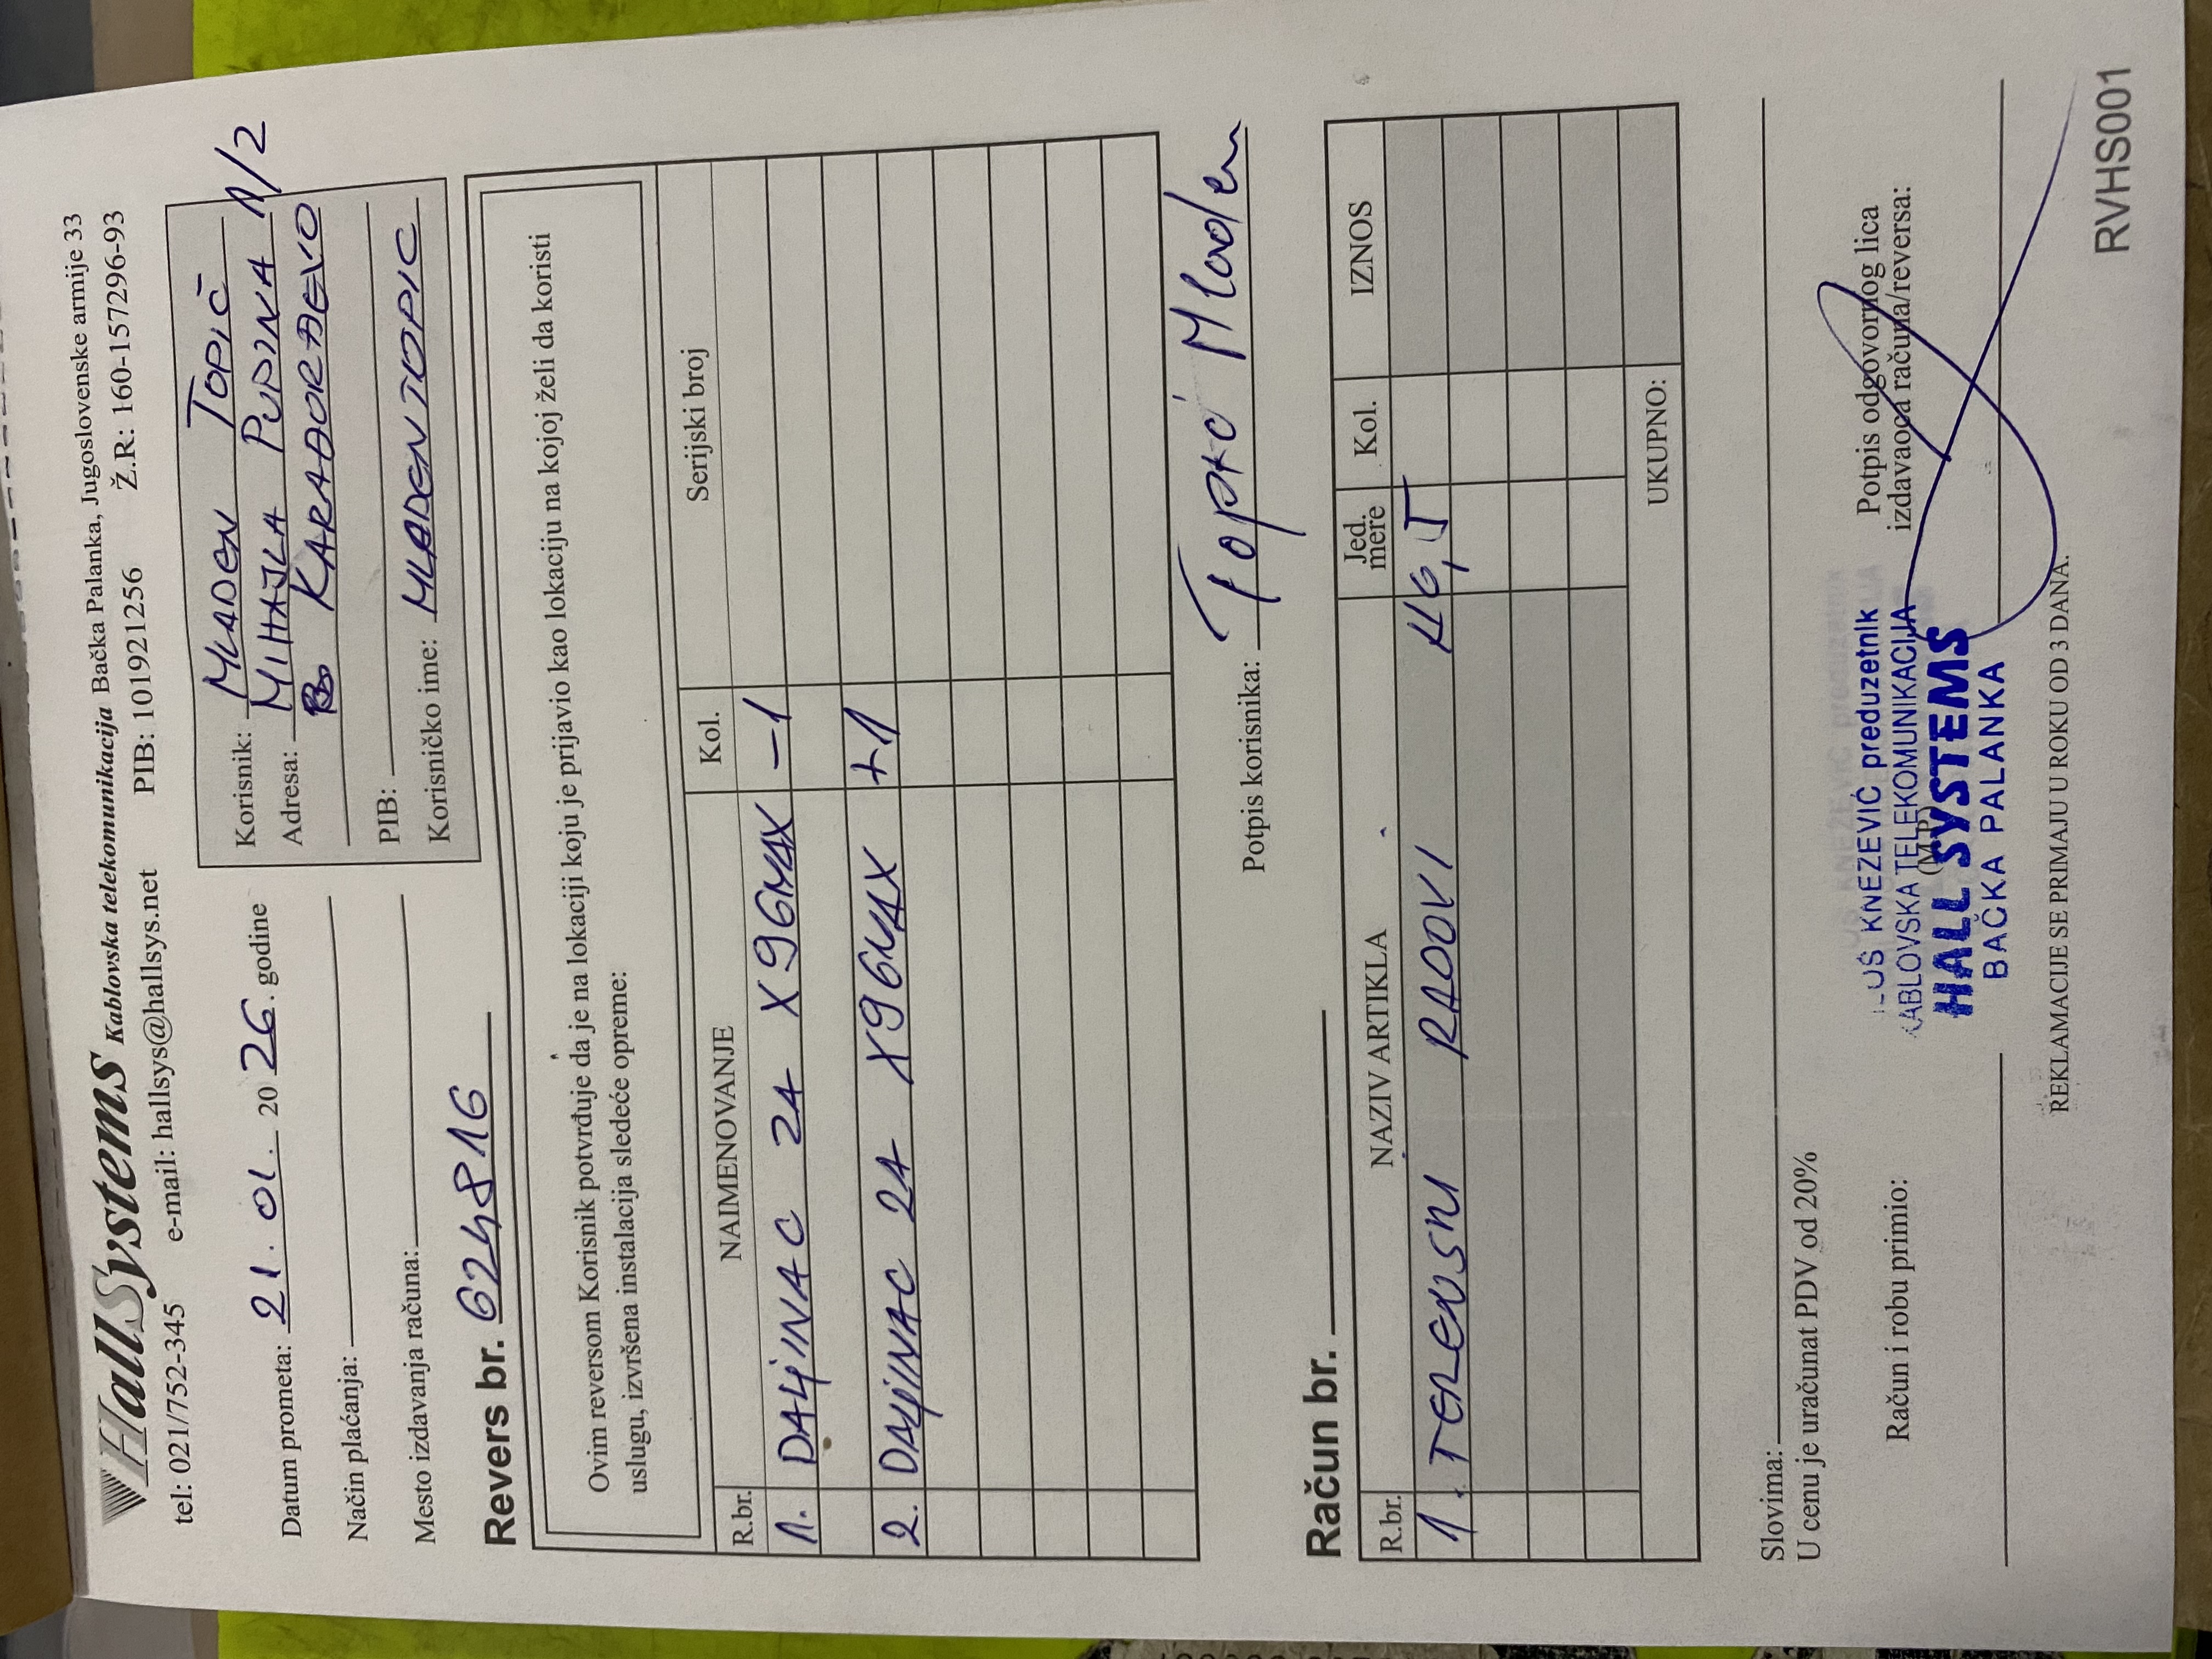 HallSystems Kablovska telekomunikacija Bačka Palanka, Jugoslovenske armije 33
tel: 021/752-345 e-mail: hallsys@hallsys.net PIB: 101921256 Ž.R: 160-157296-93
Datum prometa: 21. 01. 2026. godine
Način plaćanja:
Mesto izdavanja računa:
Korisnik: MLADEN TOPIĆ
Adresa: MIHAJLA PUPINA 1/2
KARAĐORĐEVO
PIB:
Korisničko ime: MLADENTOPIC
Revers br. 624816
Ovim reversom Korisnik potvrđuje da je na lokaciji koju je prijavio kao lokaciju na kojoj želi da koristi
uslugu, izvršena instalacija sledeće opreme:
R.br. NAIMENOVANJE Kol. Serijski broj
1. DALJINAC ZA X96MAX -1
2. DALJINAC ZA X96MAX +1
Potpis korisnika: Topić Mladen
Račun br.
R.br. NAZIV ARTIKLA Jed. mere Kol. IZNOS
1. TERENSKI RADOVI
UKUPNO:
Slovima:
U cenu je uračunat PDV od 20%
Račun i robu primio:
(M.P.)
Potpis odgovornog lica
izdavaoca računa/reversa:
KNEZEVIĆ preduzetnik
KABLOVSKA TELEKOMUNIKACIJA
HALL SYSTEMS
BAČKA PALANKA
REKLAMACIJE SE PRIMAJU U ROKU OD 3 DANA.
RVHS001